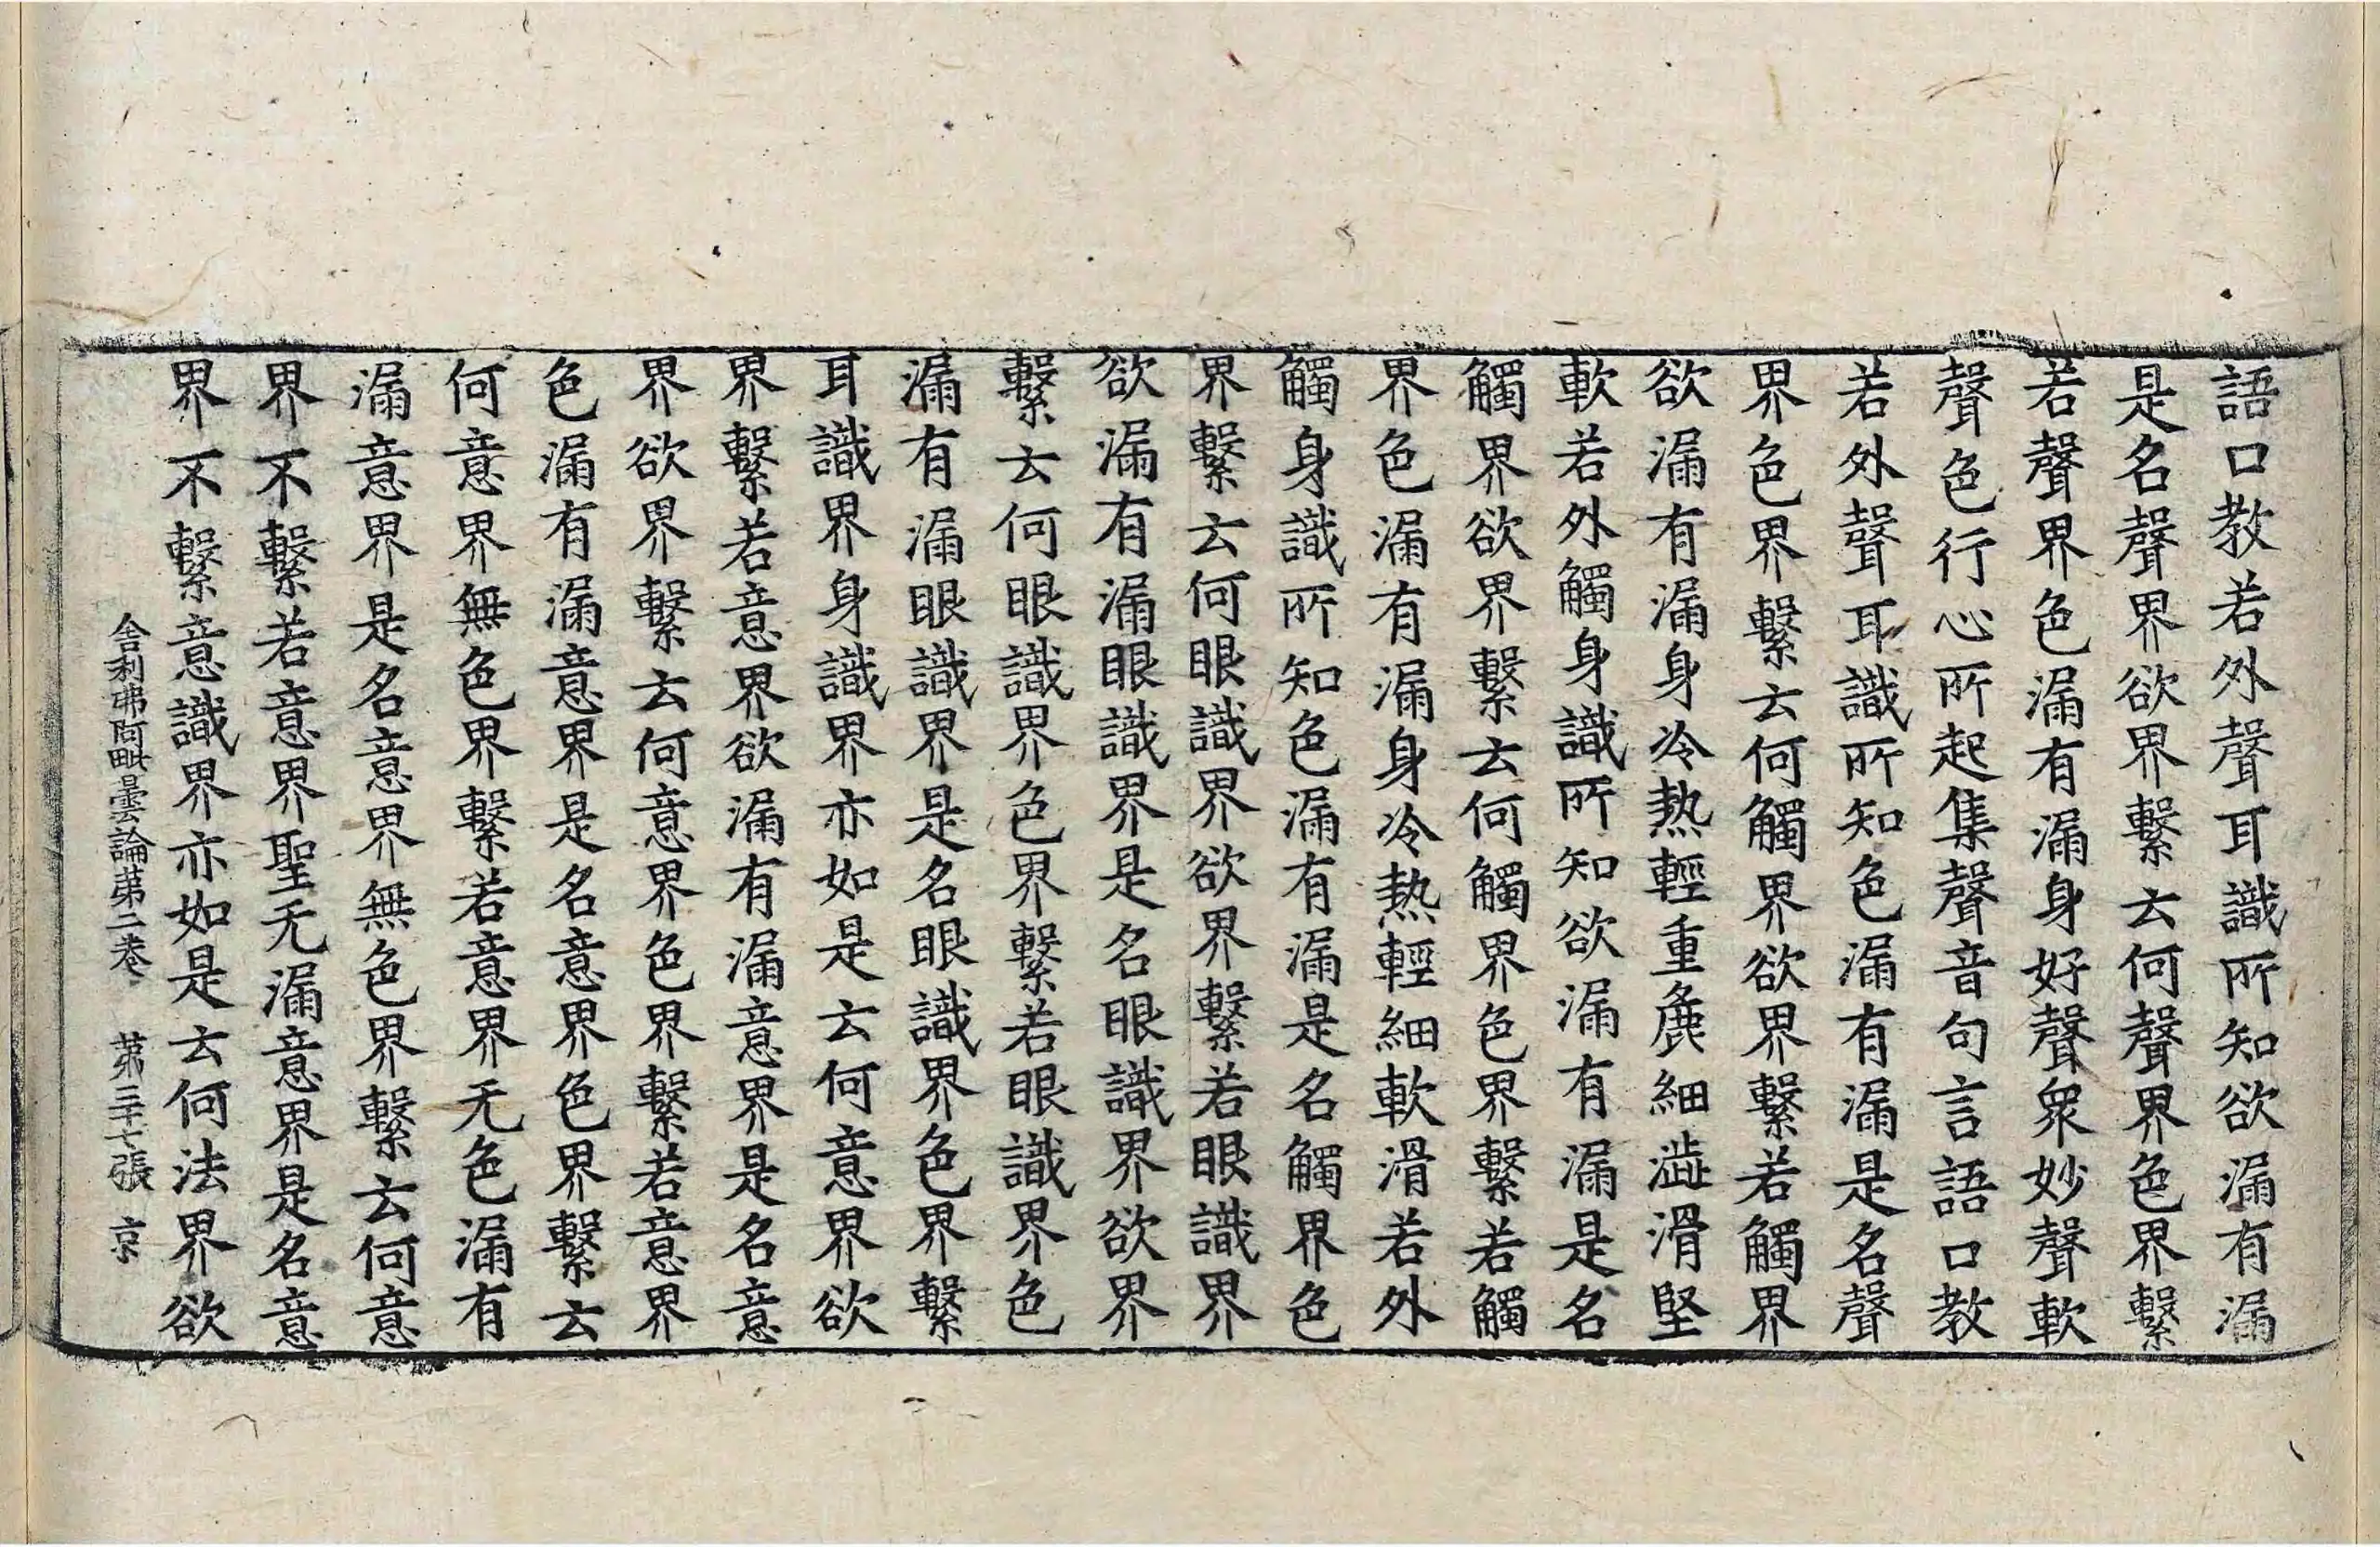 語口教若外聲耳識所知欲漏有漏
是名聲界欲界繫去何聲界色界繫
若聲界色漏有漏身好聲衆妙聲軟
聲色行心所起集聲音句言語口教
若外聲耳識所知色漏有漏是名聲
界色界繫去何觸界欲界繫若觸界
欲漏有漏身冷熱輕重麁細澁滑堅
軟若外觸身識所知欲漏有漏是名
觸界欲界繫去何觸界色界繫若觸
界色漏有漏身冷熱輕細軟滑若外
觸身識所知色漏有漏是名觸界色
界繫去何眼識界欲界繫若眼識界
欲漏有漏眼識界是名眼識界欲界
繫去何眼識界色界繫若眼識界色
漏有漏眼識界是名眼識界色界繫
耳識界身識界亦如是去何意界欲
界繫若意界欲漏有漏意界是名意
界欲界繫去何意界色界繫若意界
色漏有漏意界是名意界色界繫去
何意界無色界繫若意界无色漏有
漏意界是名意界無色界繫去何意
界不繫若意界聖无漏意界是名意
界不繫意識界亦如是去何法界欲
舍利弗阿毗曇論第二卷 第三十七張 京